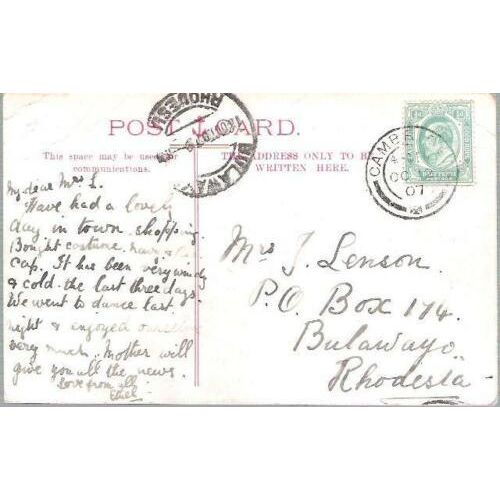 POST CARD.
This space may be used for
communications.
THE ADDRESS ONLY TO BE
WRITTEN HERE.
BULAWAYO
RHODESIA
CAMB
OC
07
My dear Mrs L.
Have had a lovely
day in town shopping.
Bought costume
cap. It has been very windy
& cold the last three days.
We went to dance last
night & enjoyed ourselves
very much. Mother will
give you all the news.
Love from all
Ethel
Mrs J. Lenson.
P.O. Box 174.
Bulawayo
Rhodesia